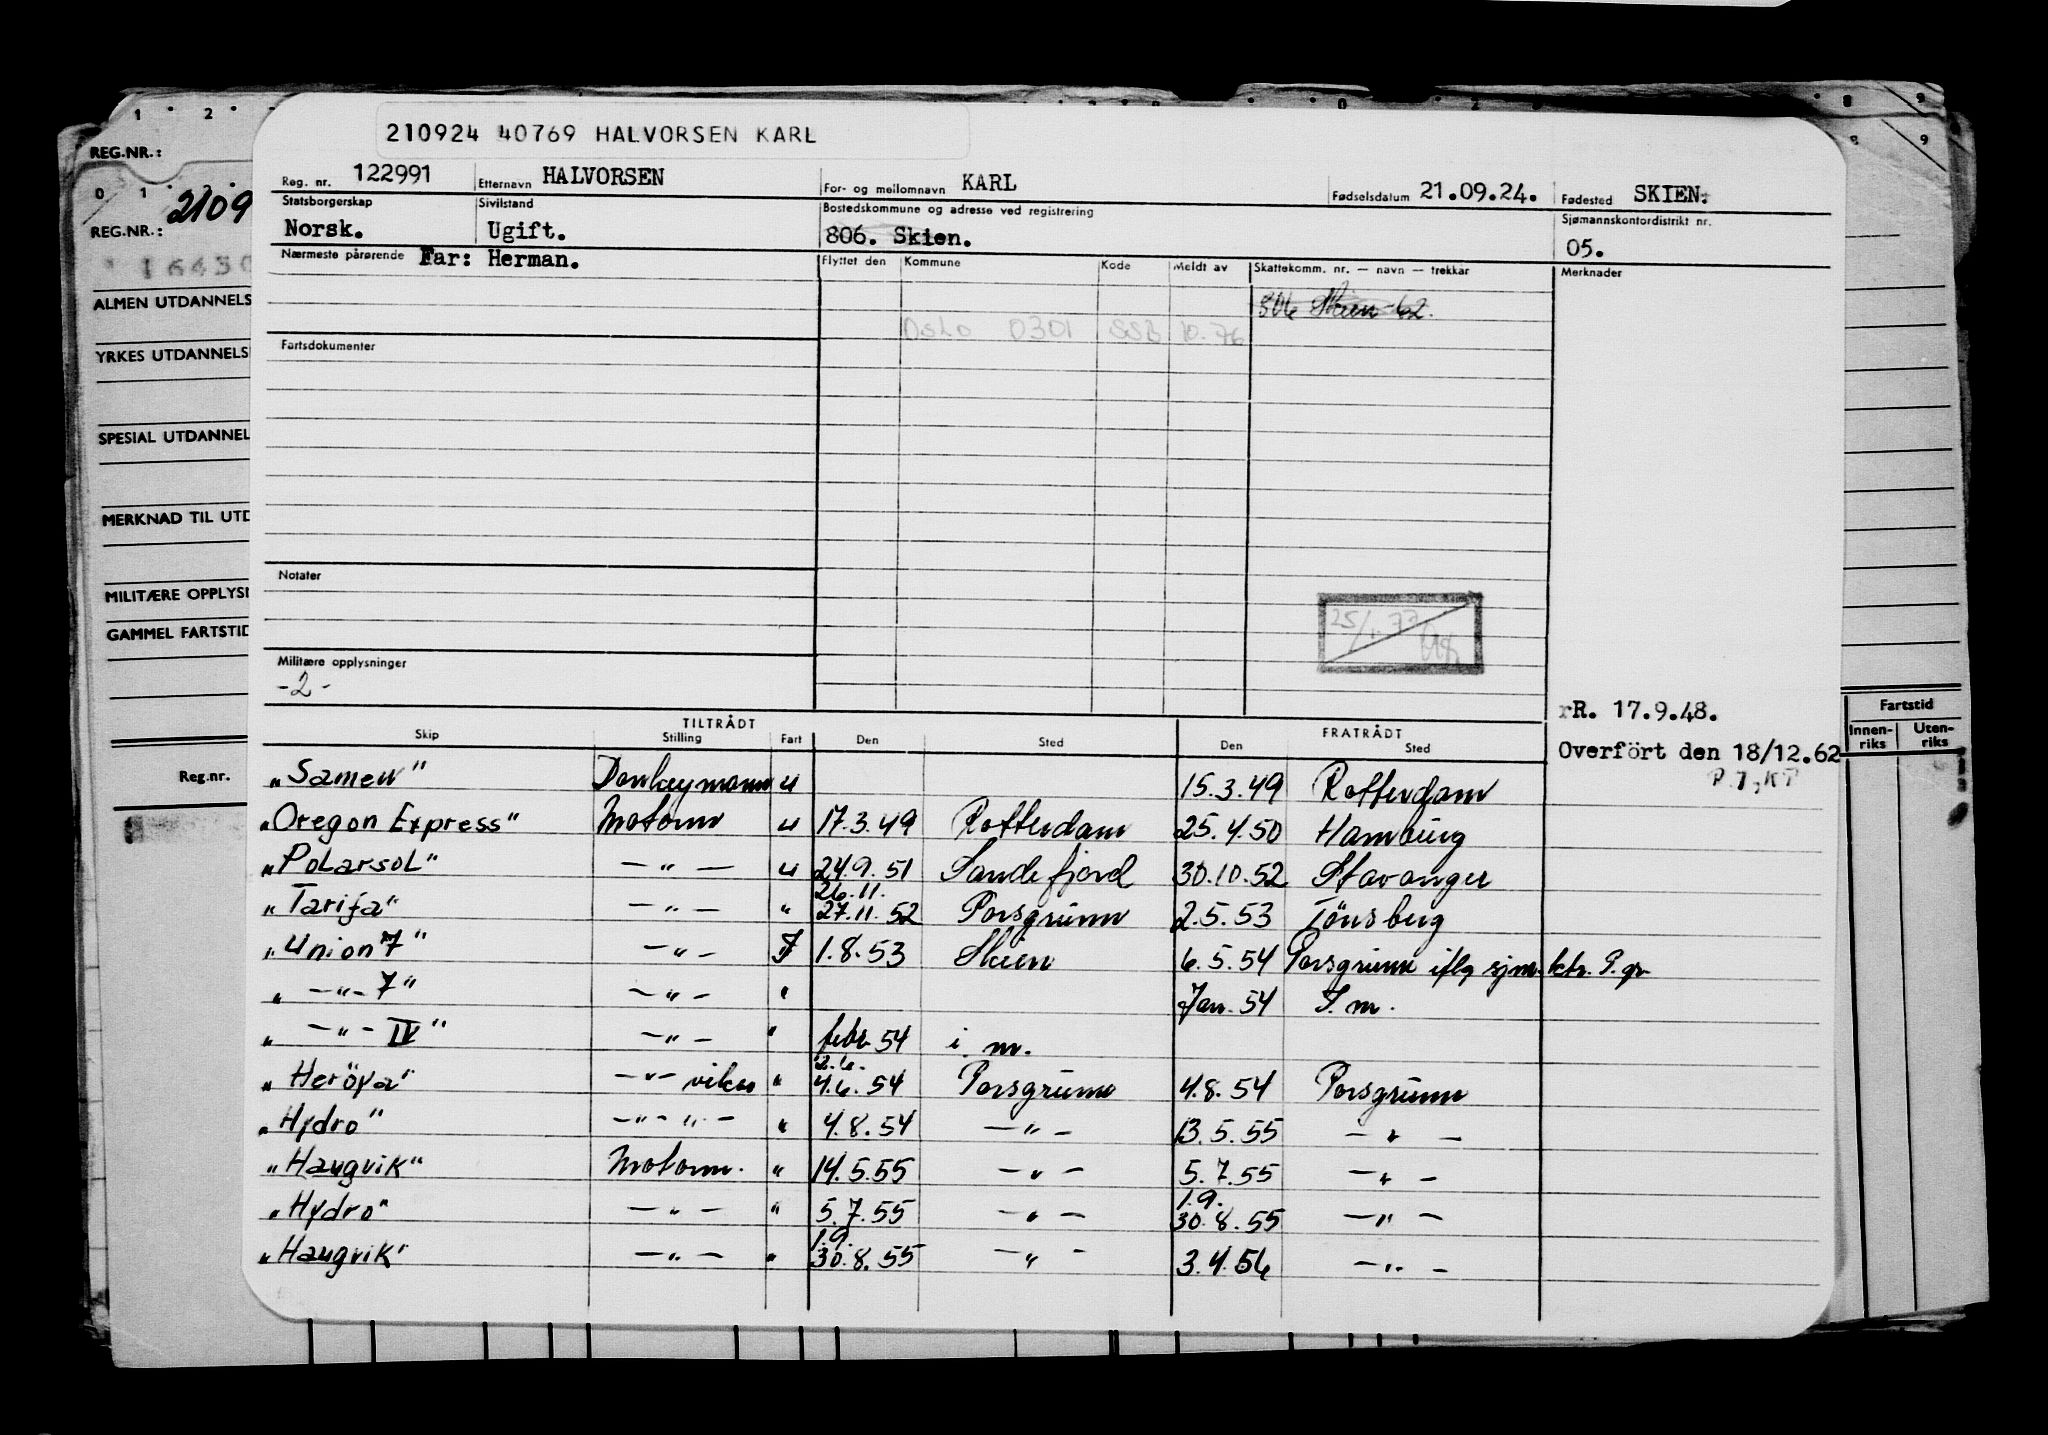 210924 40769 HALVORSEN KARL
Reg. nr. 122991 Etternavn HALVORSEN For- og mellomnavn KARL Fødselsdatum 21.09.24. Fødested SKIEN.
Statsborgerskap Sivilstand Bostedskommune og adresse ved registrering Sjømannskontordistrikt nr.
Norsk. Ugift. 806. Skien. 05.
Nærmeste pårørende Far: Herman. Flyttet den Kommune Kode Meldt av Skattekomm. nr. — navn — trekkår Merknader
806 Skien -62.
Oslo 0301 SSB 10.76
Fartsdokumenter
Notater
25/1.77
Militære opplysninger
-2-
rR. 17.9.48.
Overfört den 18/12.62
TILTRÅDT FRATRÅDT
Skip Stilling Fart Den Sted Den Sted
"Samen" Donkeymann u 15.3.49 Rotterdam
"Oregon Express" Motorm u 17.3.49 Rotterdam 25.4.50 Hamburg
"Polarsol" — " — u 24.9.51 Sandefjord 30.10.52 Stavanger
26.11.
"Tarifa" — " — " 27.11.52 Porsgrunn 2.5.53 Tönsberg
"Union 7" — " — 1.8.53 Skien 6.5.54 Porsgrunn iflg sjm. ktr. P.gr.
" — " — 7" — " — " Jan. 54 I.m.
" — " — IV" — " — " febr 54 i. m.
2.6.
"Heröya" — " — vikar " 4.6.54 Porsgrunn 4.8.54 Porsgrunn
"Hydro" — " — " — " 4.8.54 — " — 13.5.55 — " —
"Haugvik" Motorm. " 14.5.55 — " — 5.7.55 — " —
1.9.
"Hydro" — " — " 5.7.55 — " — 30.8.55 — " —
1.9.
"Haugvik" — " — " 30.8.55 — " — 3.4.56 — " —
1 2 0 2 8 9
REG.NR.:
0 1 8 9
REG.NR.: 2109
ALMEN UTDANNELS
YRKES UTDANNELS
SPESIAL UTDANNEL
MERKNAD TIL UTD
MILITÆRE OPPLYSN
GAMMEL FARTSTID
Reg.nr.
Fartstid
Innen-riks Uten-riks